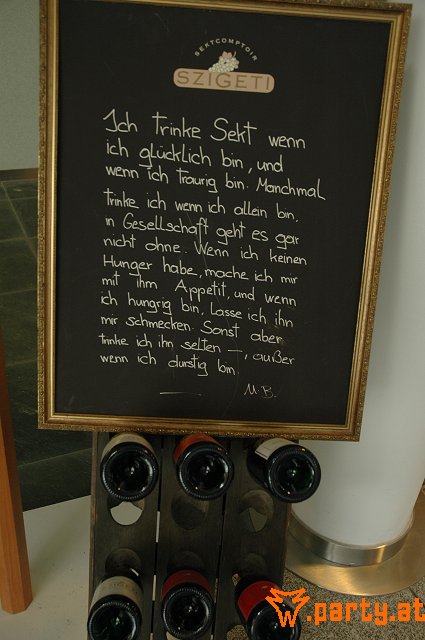 SEKTCOMPTOIR
SZIGETI
Ich trinke Sekt wenn
ich glücklich bin, und
wenn ich traurig bin. Manchmal
trinke ich wenn ich allein bin,
in Gesellschaft geht es gar
nicht ohne. Wenn ich keinen
Hunger habe, mache ich mir
mit ihm Appetit, und wenn
ich hungrig bin, lasse ich ihn
mir schmecken. Sonst aber
trinke ich ihn selten –, außer
wenn ich durstig bin.
M.B.
party.at